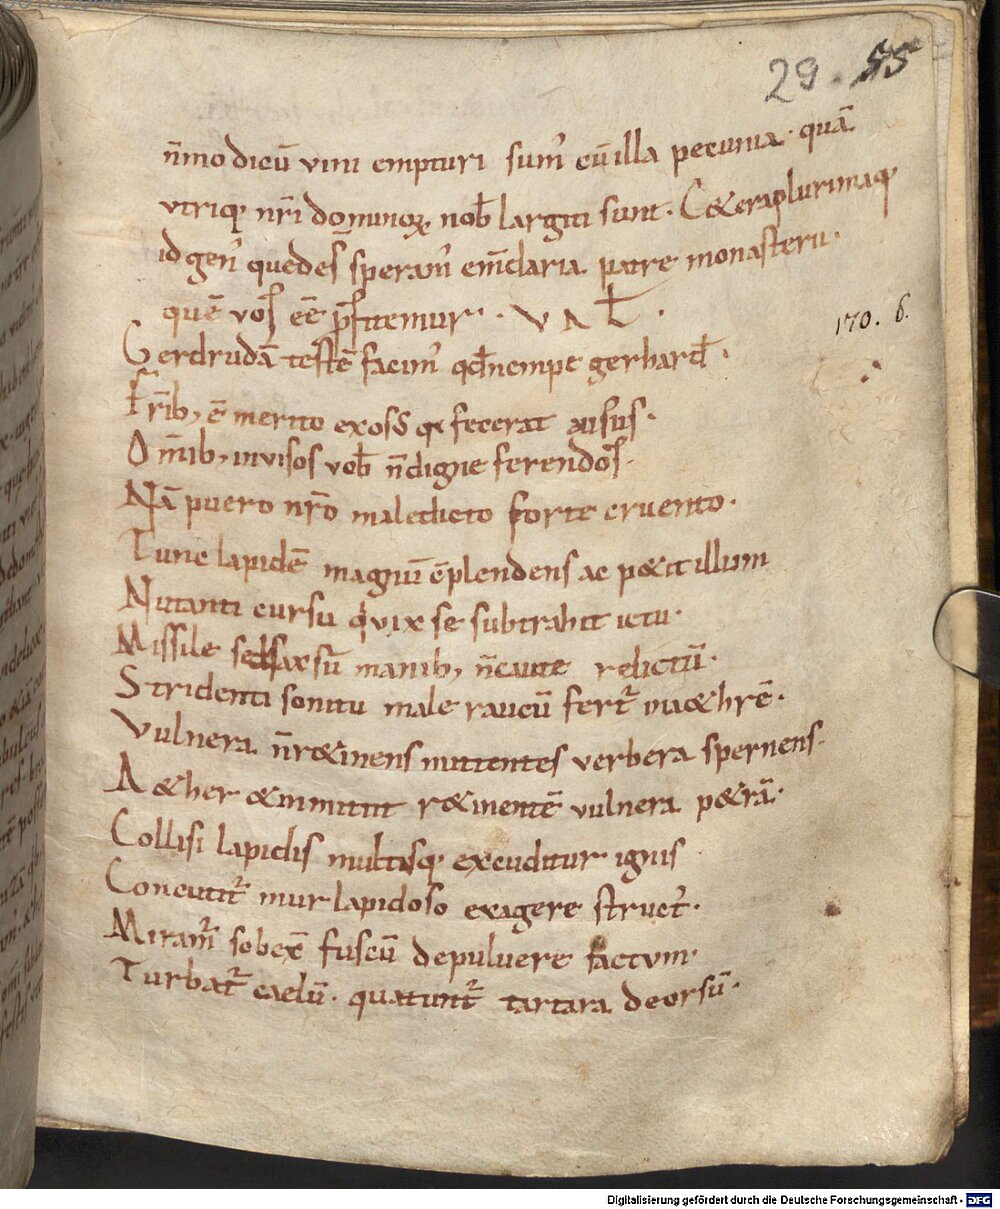 29. 55
n̄modicū vini empturi sum᾽ cū illa pecunia · quā
utriq; nr̄i dominoꝝ nob̄ largiti sunt · C&eraplurimaq;
id gen᾽ quędes̄ speram᾽ em̄claria patre monasterii ·
quē vos̄ eē p̄fitemur · V A L ·
170. 6.
Gerdrudā testē facim᾽ qd̄nempe gerhard̄ ·
Fr̄ib; ē merito exosꝰ q fecerat ausus ·
O m̄ib; invisos vob̄ n̄digne ferendos ·
Nā puero nr̄o maledicto forte cruento ·
Tunc lapidē magnū ēplendens ac p&it illum
Nutanti cursu q vix se subtrahit ictu ·
Missile sed saxsū manib; n̄caute relictū ·
Stridenti sonitu male raucū fert᾽ in a&hrē ·
Vulnera n̄r&inens mittentes verbera spernens ·
A&her &inmitit r&inentē vulnera p&rā ·
Collisi lapidis multisq; excuditur ignis
Concutit᾽ mur lapidoso exagere struct᾽ ·
Miram᾽ sobolē fuscū depulvere factum ·
Turbat᾽ caelū · quatiunt᾽ tartara deorsū ·
Digitalisierung gefördert durch die Deutsche Forschungsgemeinschaft - DFG